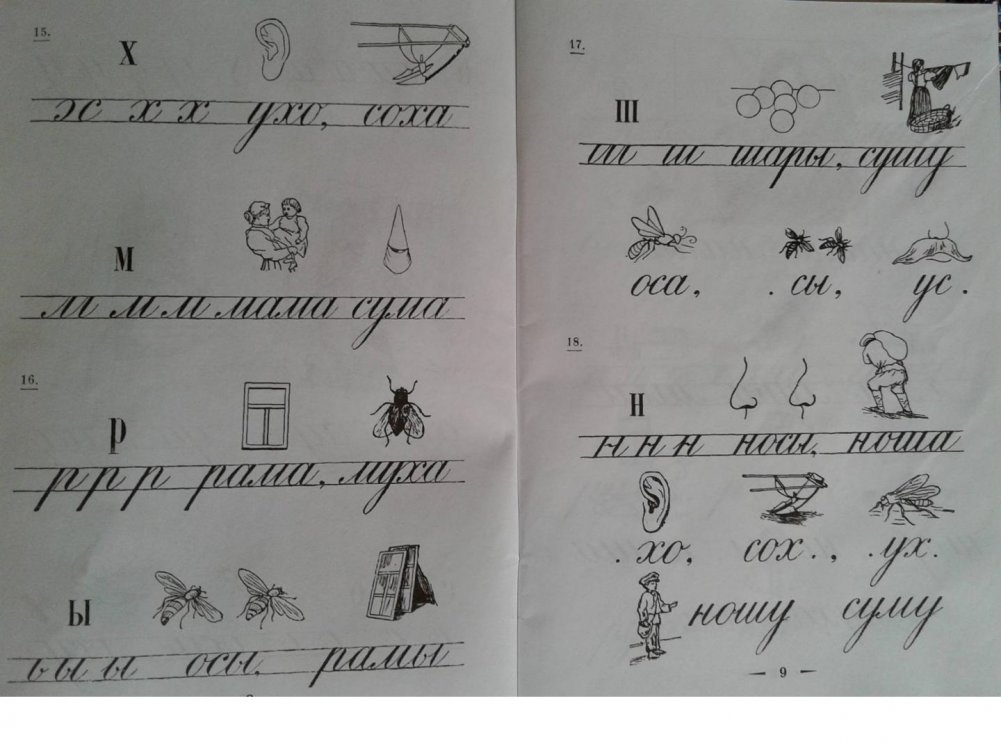 15.
Х
х х х ухо, соха
М
м м м мама сума
16.
Р
р р р рама, муха
Ы
ы ы ы осы, рамы
17.
Ш
ш ш шары, сушу
оса, . сы, ус .
18.
Н
н н н носы, ноша
. хо, сох . , . ух .
ношу суму
— 9 —